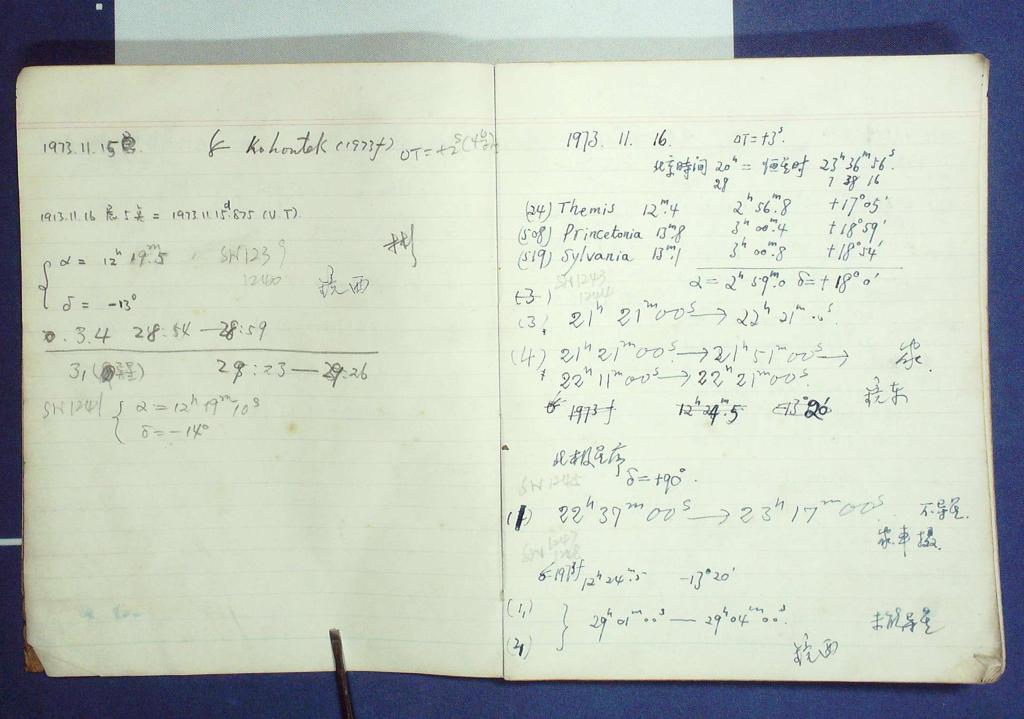 1973.11.15
Kohoutek (1973f) OT=+2ˢ
1973.11.16 晨5矣 = 1973.11.15ᵈ.875 (U.T)
α = 12ʰ 19ᵐ.5 SN1239
1240
δ = -13°
3.4 28:54 — 28:59
3, 29:23 — 29:26
SN1241 α = 12ʰ 19ᵐ 10ˢ
δ = -14°
1973. 11. 16. OT=+3ˢ.
北京時间 20ʰ = 恒星时 23ʰ36ᵐ56ˢ
28 7 38 16
(24) Themis 12ᵐ.4 2ʰ56ᵐ.8 +17°05′
(508) Princetonia 13ᵐ.8 3ʰ00ᵐ.4 +18°59′
(519) Sylvania 13ᵐ.1 3ʰ00ᵐ.8 +18°54′
SN1243
1244
α = 2ʰ59ᵐ.0 δ = +18°0′
(3) 21ʰ 21ᵐ00ˢ → 22ʰ 21ᵐ00ˢ.
(4) 21ʰ21ᵐ00ˢ → 21ʰ51ᵐ00ˢ →
22ʰ11ᵐ00ˢ → 22ʰ21ᵐ00ˢ.
1973f 12ʰ24ᵐ.5 -13°20′
北极星序
SN1245 δ=+90°.
22ʰ37ᵐ00ˢ → 23ʰ17ᵐ00ˢ 不导星.
SN1247
1248
1973f 12ʰ24ᵐ.5 -13°20′
29ʰ01ᵐ00ˢ — 29ʰ04ᵐ00ˢ. 未能导星